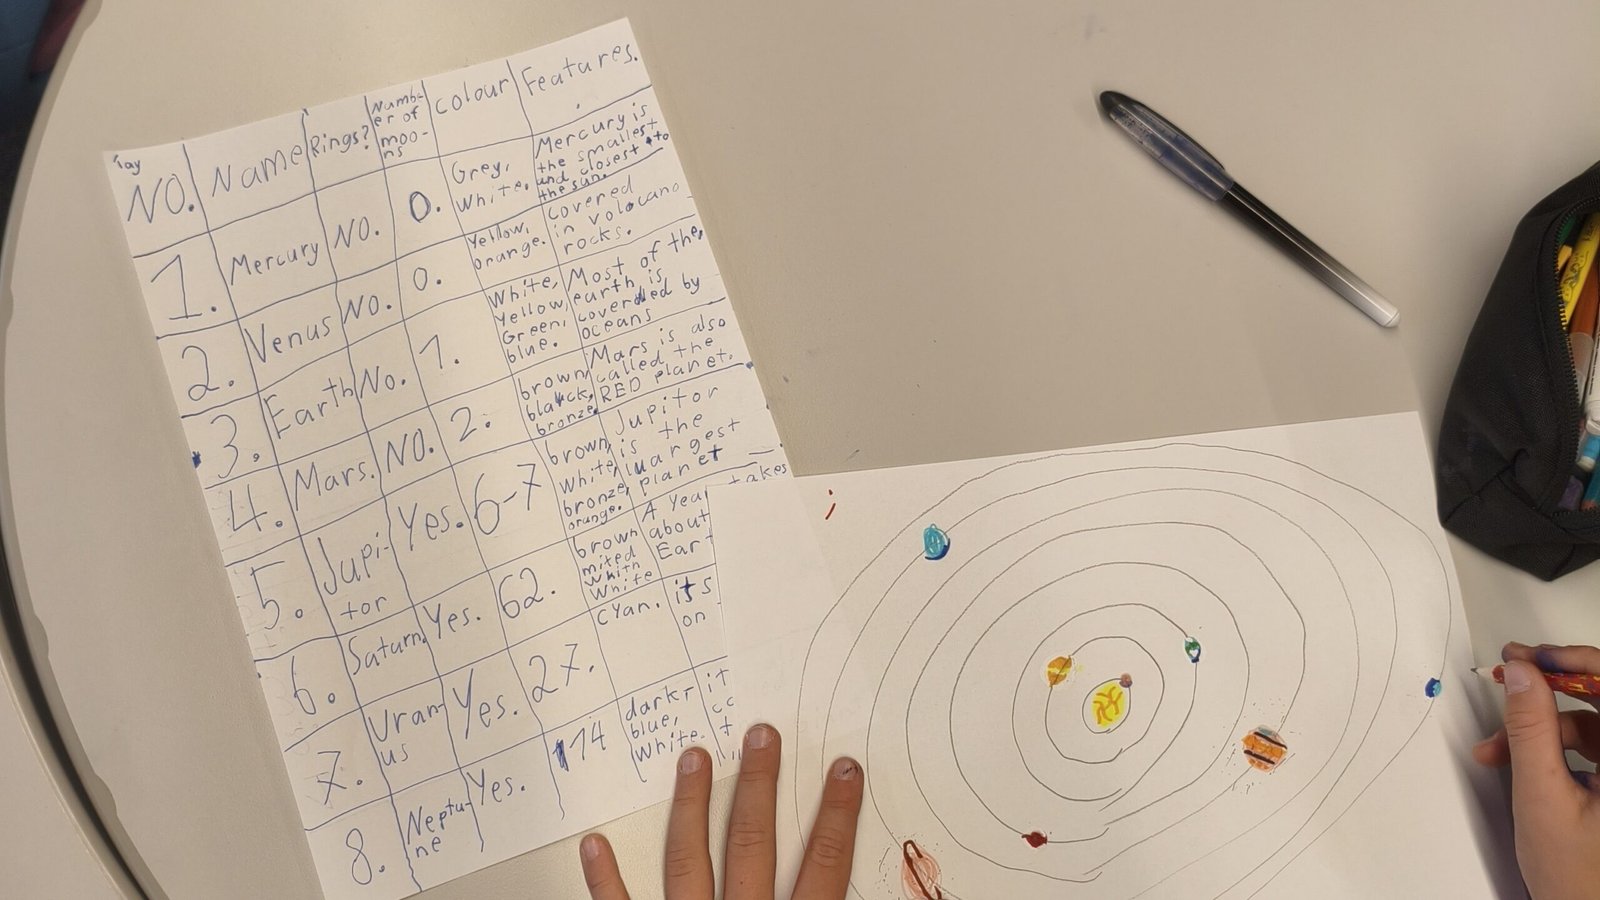 NO.
Name
Rings?
Numb-
er of
moo-
ns
colour
Features.
1.
Mercury
NO.
0.
Grey,
White.
Mercury is
the smallest
and closest to
the sun.
2.
Venus
NO.
0.
Yellow,
orange.
covered
in volocano
rocks.
3.
Earth
No.
1.
White,
Yellow
Green,
blue.
Most of the
earth is
coverded by
oceans
4.
Mars.
NO.
2.
brown,
black,
bronze.
Mars is also
called the
RED planet.
5.
Jupi-
tor
Yes.
6-7
brown,
white,
bronze,
orange.
Jupitor
is the
luargest
planet
6.
Saturn.
Yes.
62.
brown
mited
whith
white
A year takes
about
Eart
7.
Uran-
us
Yes.
27.
cyan.
its
on
8.
Neptu-
ne
Yes.
14
dark
blue,
White.
it